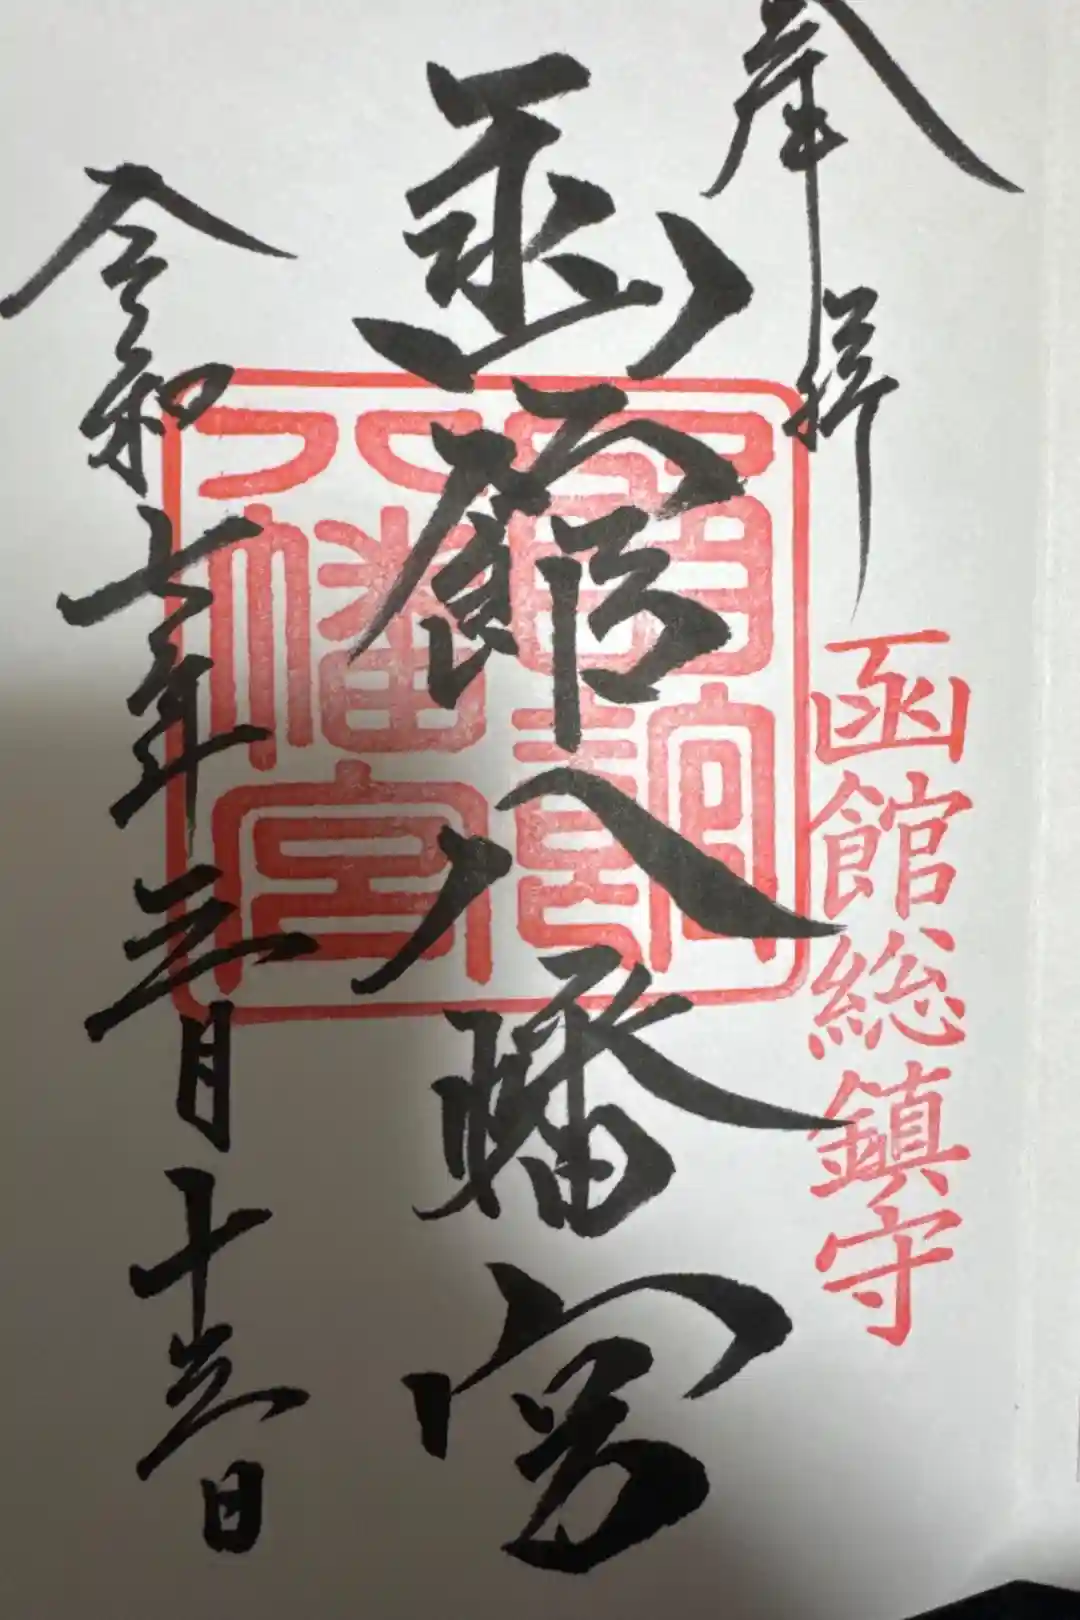 奉拝
函館総鎮守
函館八幡宮
八幡宮
令和七年三月十三日